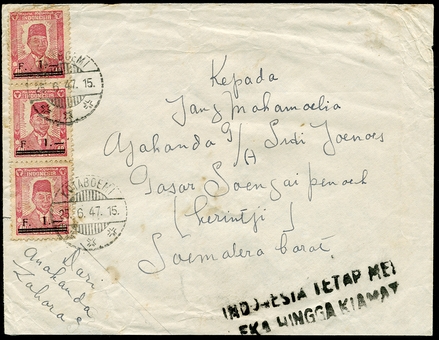 INDONESIA
F. 1.-
INDONESIA
F. 1.-
INDONESIA
F. 1.-
6. 47. 15.
25. 6. 47. 15.
Kepada
Jang Mahamoelia
Ajahanda 9/A Sidi Joenoes
Pasar Soengai penoeh
(Kerintji)
Soematera barat.
Dari
Anakanda
Zahara
INDONESIA TETAP MER
EKA HINGGA KIAMAT